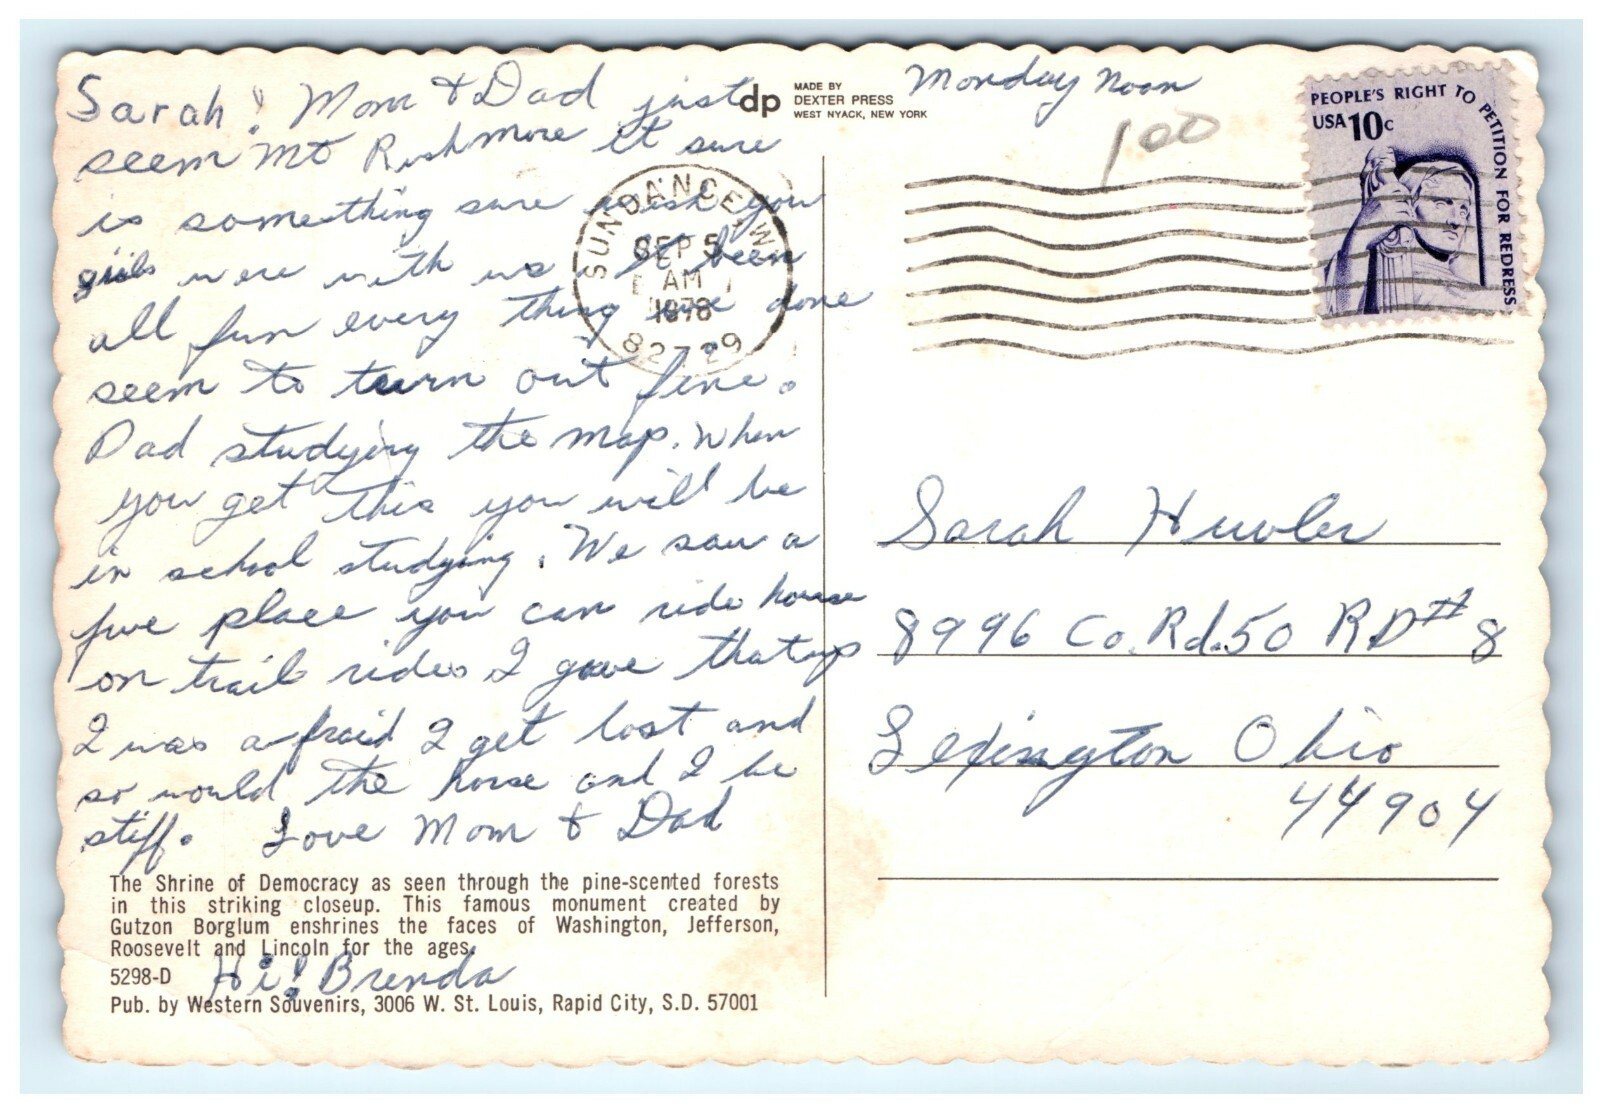 Sarah! Mom & Dad just
seem Mt Rushmore It sure
is something sure wish you
girls were with us. It been
all fun every thing we done
seem to turn out fine.
Dad studying the map. When
you get this you will be
in school studying. We saw a
five place you can ride horse
on trail rides I gave that up
I was afraid I get lost and
so would the horse and I be
stiff. Love Mom & Dad
The Shrine of Democracy as seen through the pine-scented forests
in this striking closeup. This famous monument created by
Gutzon Borglum enshrines the faces of Washington, Jefferson,
Roosevelt and Lincoln for the ages.
5298-D Hi! Brenda
Pub. by Western Souvenirs, 3006 W. St. Louis, Rapid City, S.D. 57001
dp
MADE BY
DEXTER PRESS
WEST NYACK, NEW YORK
Monday Noon
100
PEOPLE'S RIGHT TO PETITION FOR REDRESS
USA 10c
SUNDANCE, W
SEP 5
AM
1978
82729
Sarah Huvler
8996 Co. Rd. 50 RD# 8
Lexington Ohio
44904